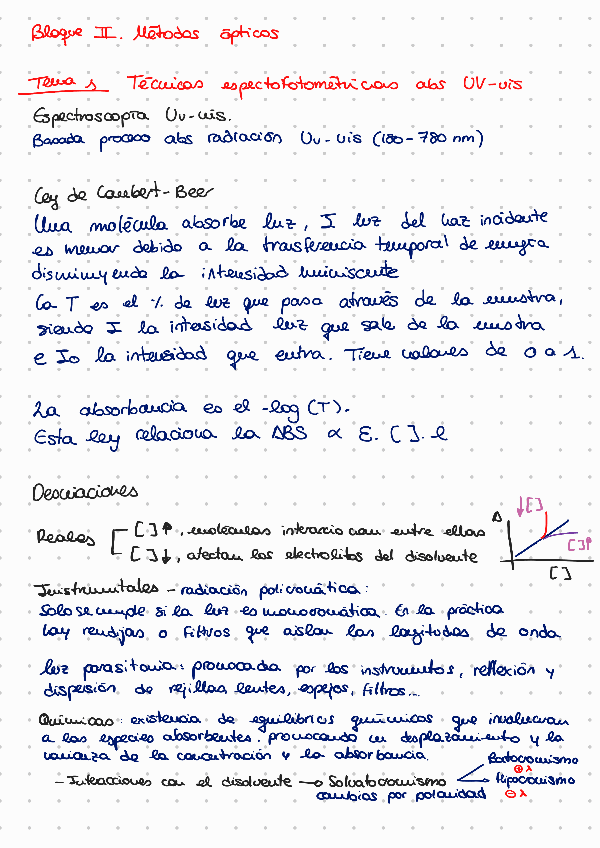 Bloque II. Métodos ópticos
Tema 1 Técnicas espectofotométricas abs UV-vis
Espectroscopia Uv-vis.
Basada proceso abs radiación Uv-vis (180-780 nm)
Ley de Lambert-Beer
Una molécula absorbe luz, I luz del haz incidente
es menor debido a la transferencia temporal de energia
disminuyendo la intensidad
La T es el % de luz que pasa através de la muestra,
siendo I la intensidad luz que sale de la muestra
e Io la intensidad que entra. Tiene valores de 0 a 1.
La absorbancia es el -log (T).
Esta ley relaciona la ABS ∝ ε. [ ]. l
Desviaciones
Reales
[ ]↑, moléculas interaccionan entre ellas
[ ]↓, afectan los electrolitos del disolvente
↓[ ]
A
[ ]↑
[ ]
Instrumentales - radiación policromática:
Solo se cumple si la luz es monocromática. En la práctica
hay rendijas o filtros que aislan las longitudes de onda
luz parasitaria: provocada por los instrumentos, reflexión y
dispersión de rejillas lentes, espejos, filtros...
Químicas: existencia de equilibrios químicos que involucran
a las especies absorbentes. provocando un desplazamiento y la
varianza de la concentración y la absorbancia.
- Interacciones con el disolvente → Solvatocromismo
cambios por polaridad
Batocromismo
⊕ λ
Hipocromismo
⊖ λ